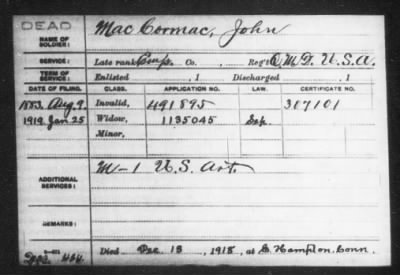 DEAD
NAME OF SOLDIER: Mac Cormac, John
SERVICE: Late rank Co. , Reg't Q M D. U.S.A.
TERM OF SERVICE: Enlisted , 1 Discharged , 1
DATE OF FILING. CLASS. APPLICATION NO. LAW. CERTIFICATE NO.
1883 Aug. 9. Invalid, 491895 317101
1919 Jan 25 Widow, 1135045
Minor,
ADDITIONAL SERVICES: M-1 U.S. Art.
REMARKS:
Died Dec 13, 1918, at E. Hampton, Conn.
464.